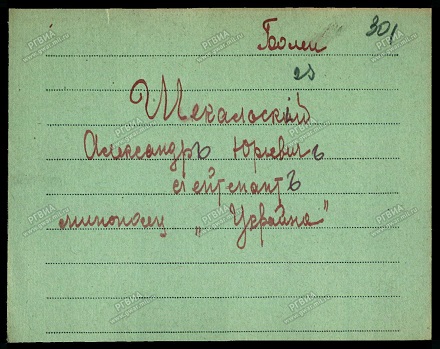 Болен 301
23
Шекалоский
Александръ Юрьевичъ
лейтенантъ
миноносец „Украйна"